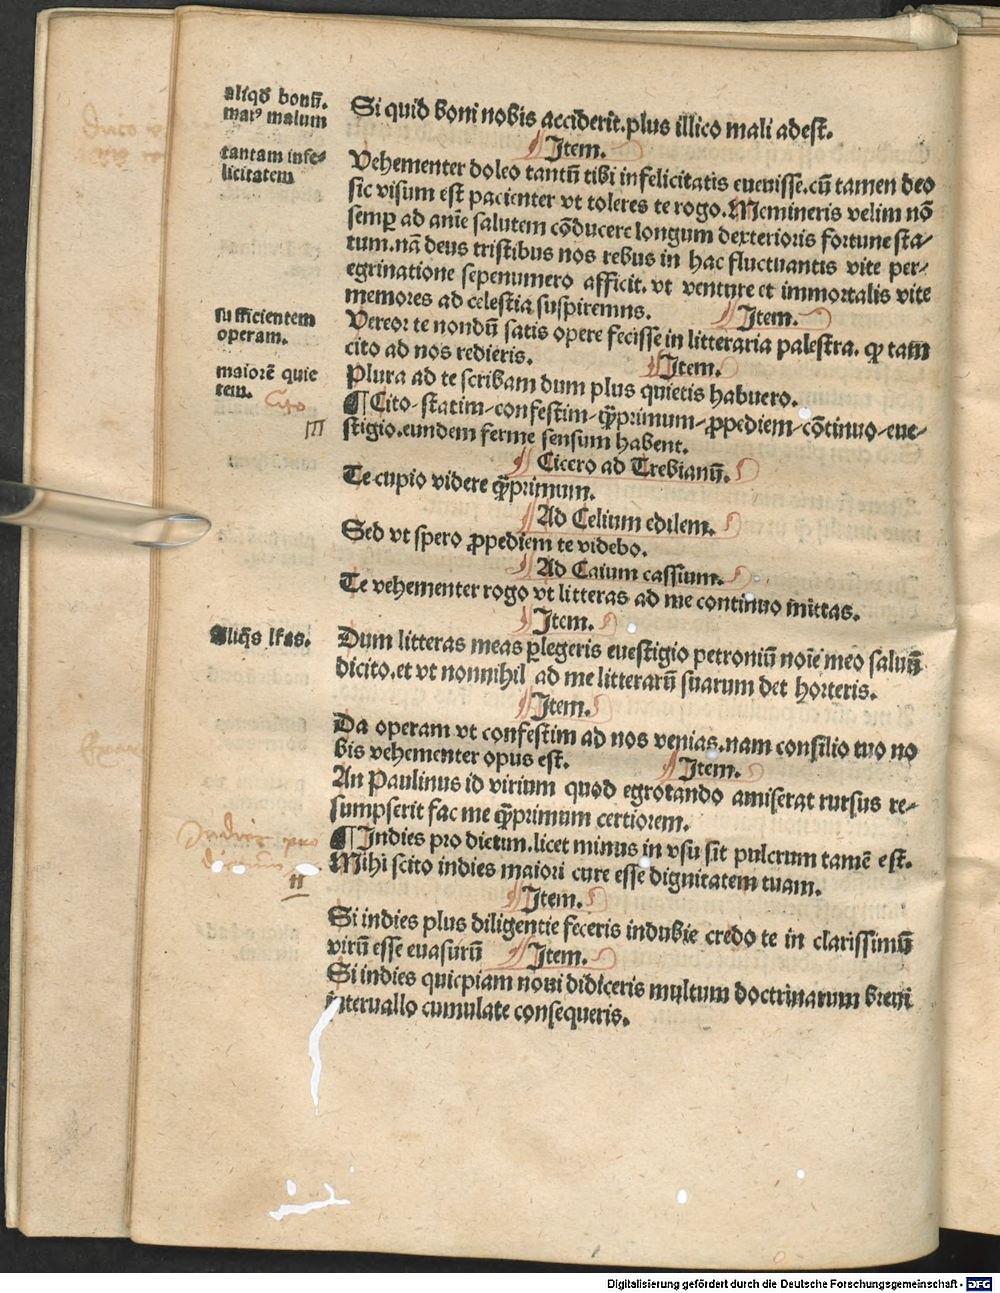 aliqď bonū.
maiꝰ malum
Si quid boni nobis acciderit.plus illico mali adest.
Item.
tantam infe-
licitatem
Vehementer doleo tantū tibi infelicitatis euenisse.cū tamen deo
sic visum est pacienter vt toleres te rogo.Memineris velim nō
semꝑ ad anīe salutem cōducere longum dexterioris fortune sta-
tum.nā deus tristibus nos rebus in hac fluctuantis vite per-
egrinatione sepenumero afficit.vt venture et immortalis vite
memores ad celestia suspiremns.
Item.
sufficientem
operam.
Vereor te nondū satis opere fecisse in litteraria palestra. qꝫ tam
cito ad nos redieris.
Item.
maiorē quie
tem.
Plura ad te scribam dum plus quietis habuero.
Cito
III
¶ Cito-statim-confestim-q̄primum-ꝓpediem-cōtinuo-eue-
stigio.eundem ferme sensum habent.
Cicero ad Trebianū.
Te cupio videre q̄primum.
Ad Celium edilem.
Sed vt spero ꝓpediem te videbo.
Ad Caium cassium.
Te vehementer rogo vt litteras ad me continuo mittas.
Item.
Aliq̄s lr̄as.
Dum litteras meas ꝑlegeris euestigio petroniū noīe meo saluū
dicito.et vt nonnihil ad me litterarū suarum det horteris.
Item.
Da operam vt confestim ad nos venias.nam consilio tuo no
bis vehementer opus est.
Item.
An Paulinus id virium quod egrotando amiserat rursus re-
sumpserit fac me q̄primum certiorem.
Indies pro
II
¶ Indies pro dietim.licet minus in vsu sit pulcrum tamē est.
Mihi scito indies maiori cure esse dignitatem tuam.
Item.
Si indies plus diligentie feceris indubie credo te in clarissimū
virū esse euasurū
Item.
Si indies quicpiam noui didiceris multum doctrinarum breui
interuallo cumulate consequeris.
Digitalisierung gefördert durch die Deutsche Forschungsgemeinschaft - DFG